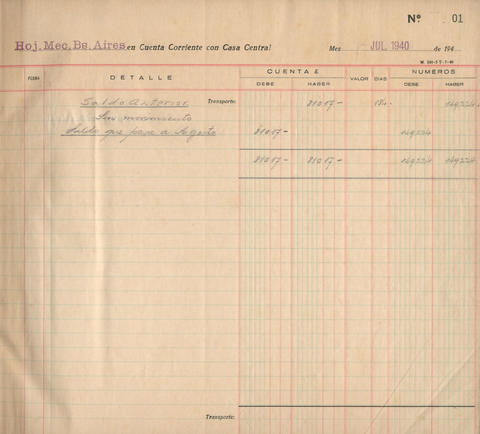 Nº 01
Hoj. Mec. Bs. Aires en Cuenta Corriente con Casa Central Mes JUL 1940 de 194
CUENTA £ NUMEROS
FECHA DETALLE DEBE HABER VALOR DIAS DEBE HABER
Saldo Anterior Transporte: 81017- 184- 149224
Sin movimiento
Saldo que pasa a Agosto 81017- 149224
81017- 81017- 149224 149224
Transporte: